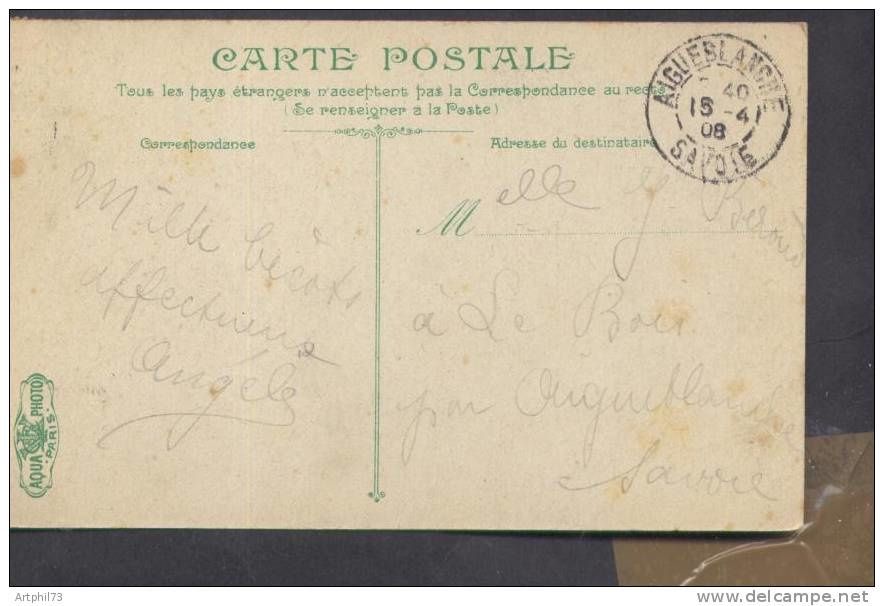 CARTE POSTALE
Tous les pays étrangers n'acceptent pas la Correspondance au recto
(Se renseigner à la Poste)
Correspondance
Adresse du destinataire
AIGUEBLANCHE
40
15 -4
08
SAVOIE
Mille bécots
affectueux
Angèle
Melle J.
à Le Bois
par Aigueblanche
Savoie
AQUA PHOTO
PARIS
Artphil73